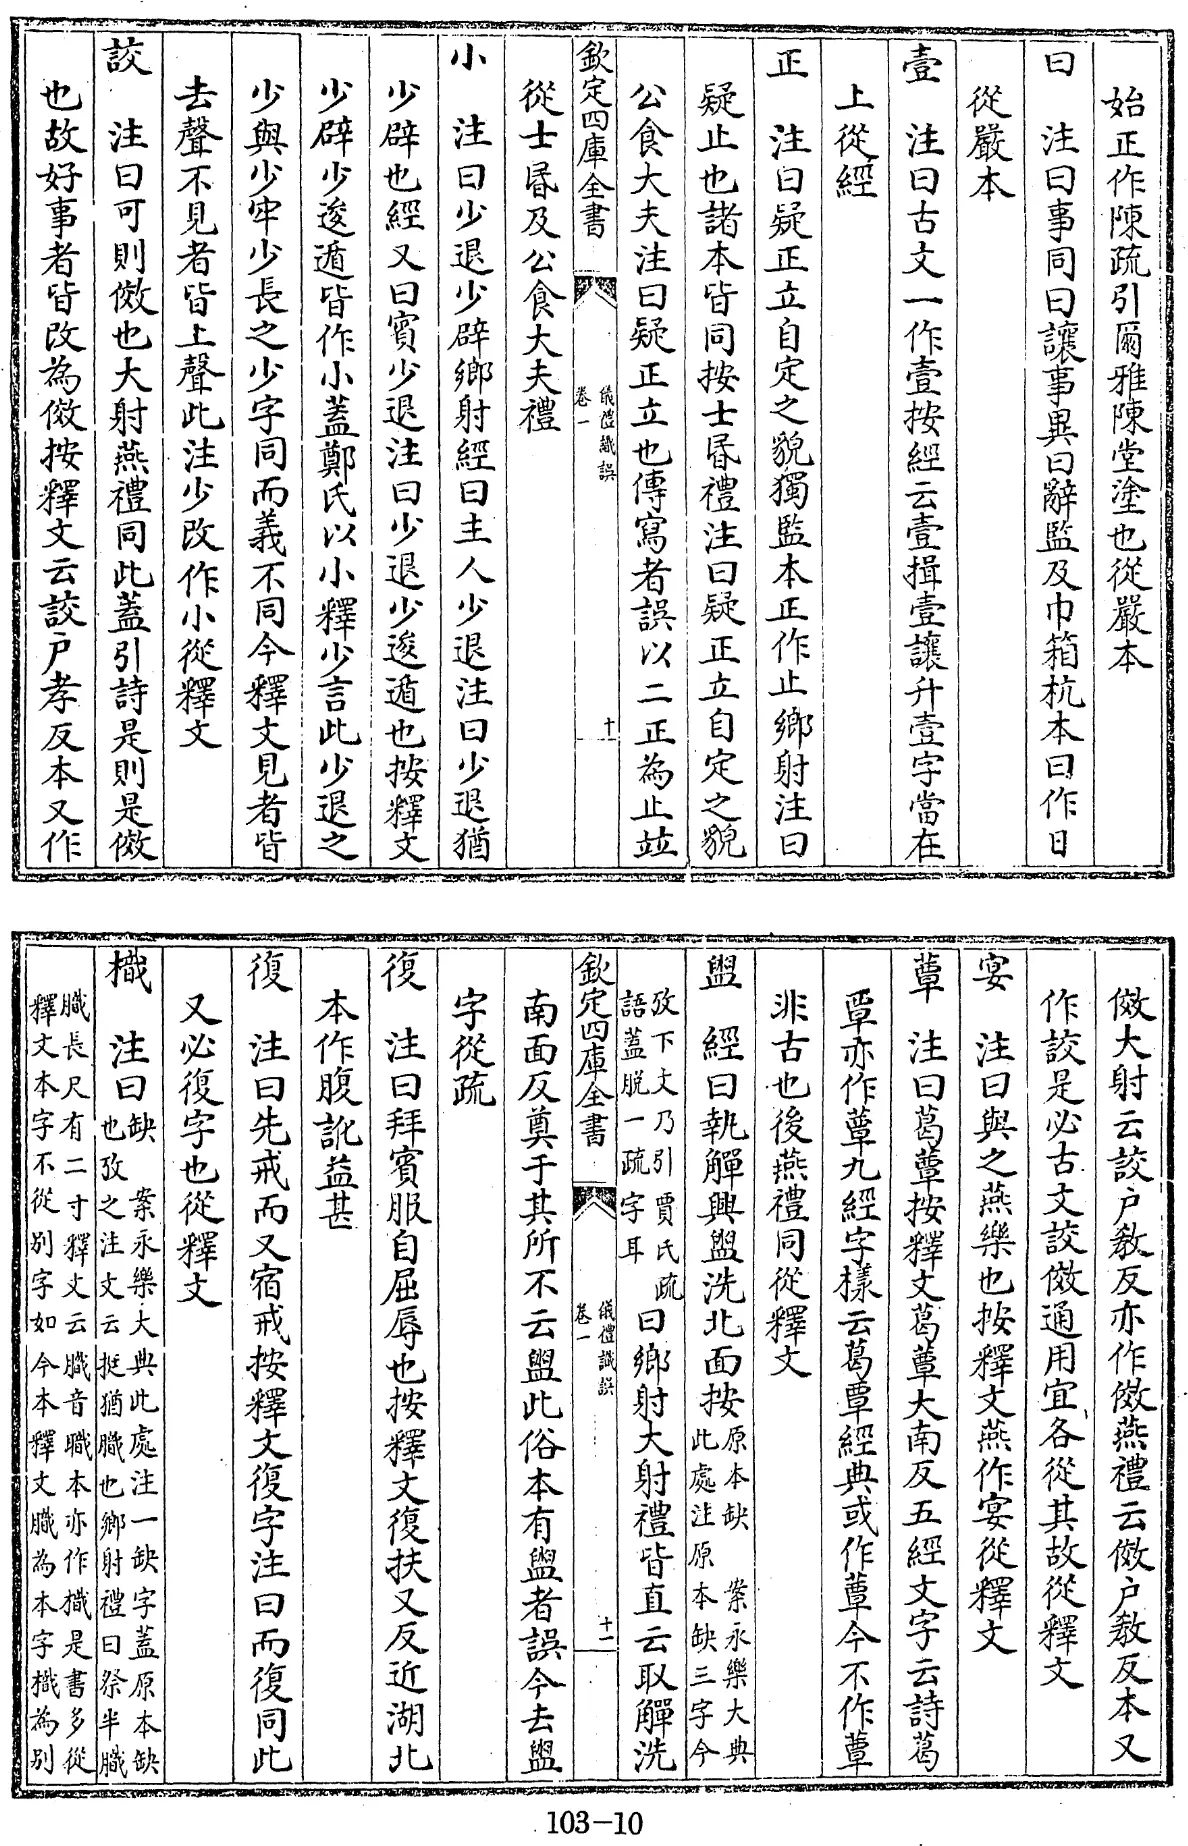 始正作陳疏引爾雅陳堂塗也從嚴本
曰　注曰事同曰讓事異曰辭監及巾箱杭本曰作日
從嚴本
壹　注曰古文一作壹按經云壹揖壹讓升壹字當在
上從經
正　注曰疑正立自定之貌獨監本正作止鄉射注曰
疑止也諸本皆同按士昏禮注曰疑正立自定之貌
公食大夫注曰疑正立也傳寫者誤以二正為止並
欽定四庫全書　儀禮識誤　卷一　十
從士昏及公食大夫禮
小　注曰少退少辟鄉射經曰主人少退注曰少退猶
少辟也經又曰賓少退注曰少退少逡遁也按釋文
少辟少逡遁皆作小蓋鄭氏以小釋少言此少退之
少與少牢少長之少字同而義不同今釋文見者皆
去聲不見者皆上聲此注少改作小從釋文
詨　注曰可則傚也大射燕禮同此蓋引詩是則是傚
也故好事者皆改為傚按釋文云詨户孝反本又作
傚大射云詨户教反亦作傚燕禮云傚户教反本又
作詨是必古文詨傚通用宜各從其故從釋文
宴　注曰與之燕樂也按釋文燕作宴從釋文
蕈　注曰葛蕈按釋文葛蕈大南反五經文字云詩葛
覃亦作蕈九經字樣云葛覃經典或作蕈今不作蕈
非古也後燕禮同從釋文
盥　經曰執觶興盥洗北面按原本缺　案永樂大典
此處注原本缺三字今
攷下文乃引賈氏疏
語蓋脫一疏字耳曰鄉射大射禮皆直云取觶洗
欽定四庫全書　儀禮識誤　卷一　十一
南面反奠于其所不云盥此俗本有盥者誤今去盥
字從疏
復　注曰拜賓服自屈辱也按釋文復扶又反近湖北
本作腹訛益甚
復　注曰先戒而又宿戒按釋文復字注曰而復同此
又必復字也從釋文
樴　注曰缺　案永樂大典此處注一缺字蓋原本缺
也攷之注文云挺猶膱也鄉射禮曰祭半膱
膱長尺有二寸釋文云膱音職本亦作樴是書多從
釋文本字不從别字如今本釋文膱為本字樴為别
103-10